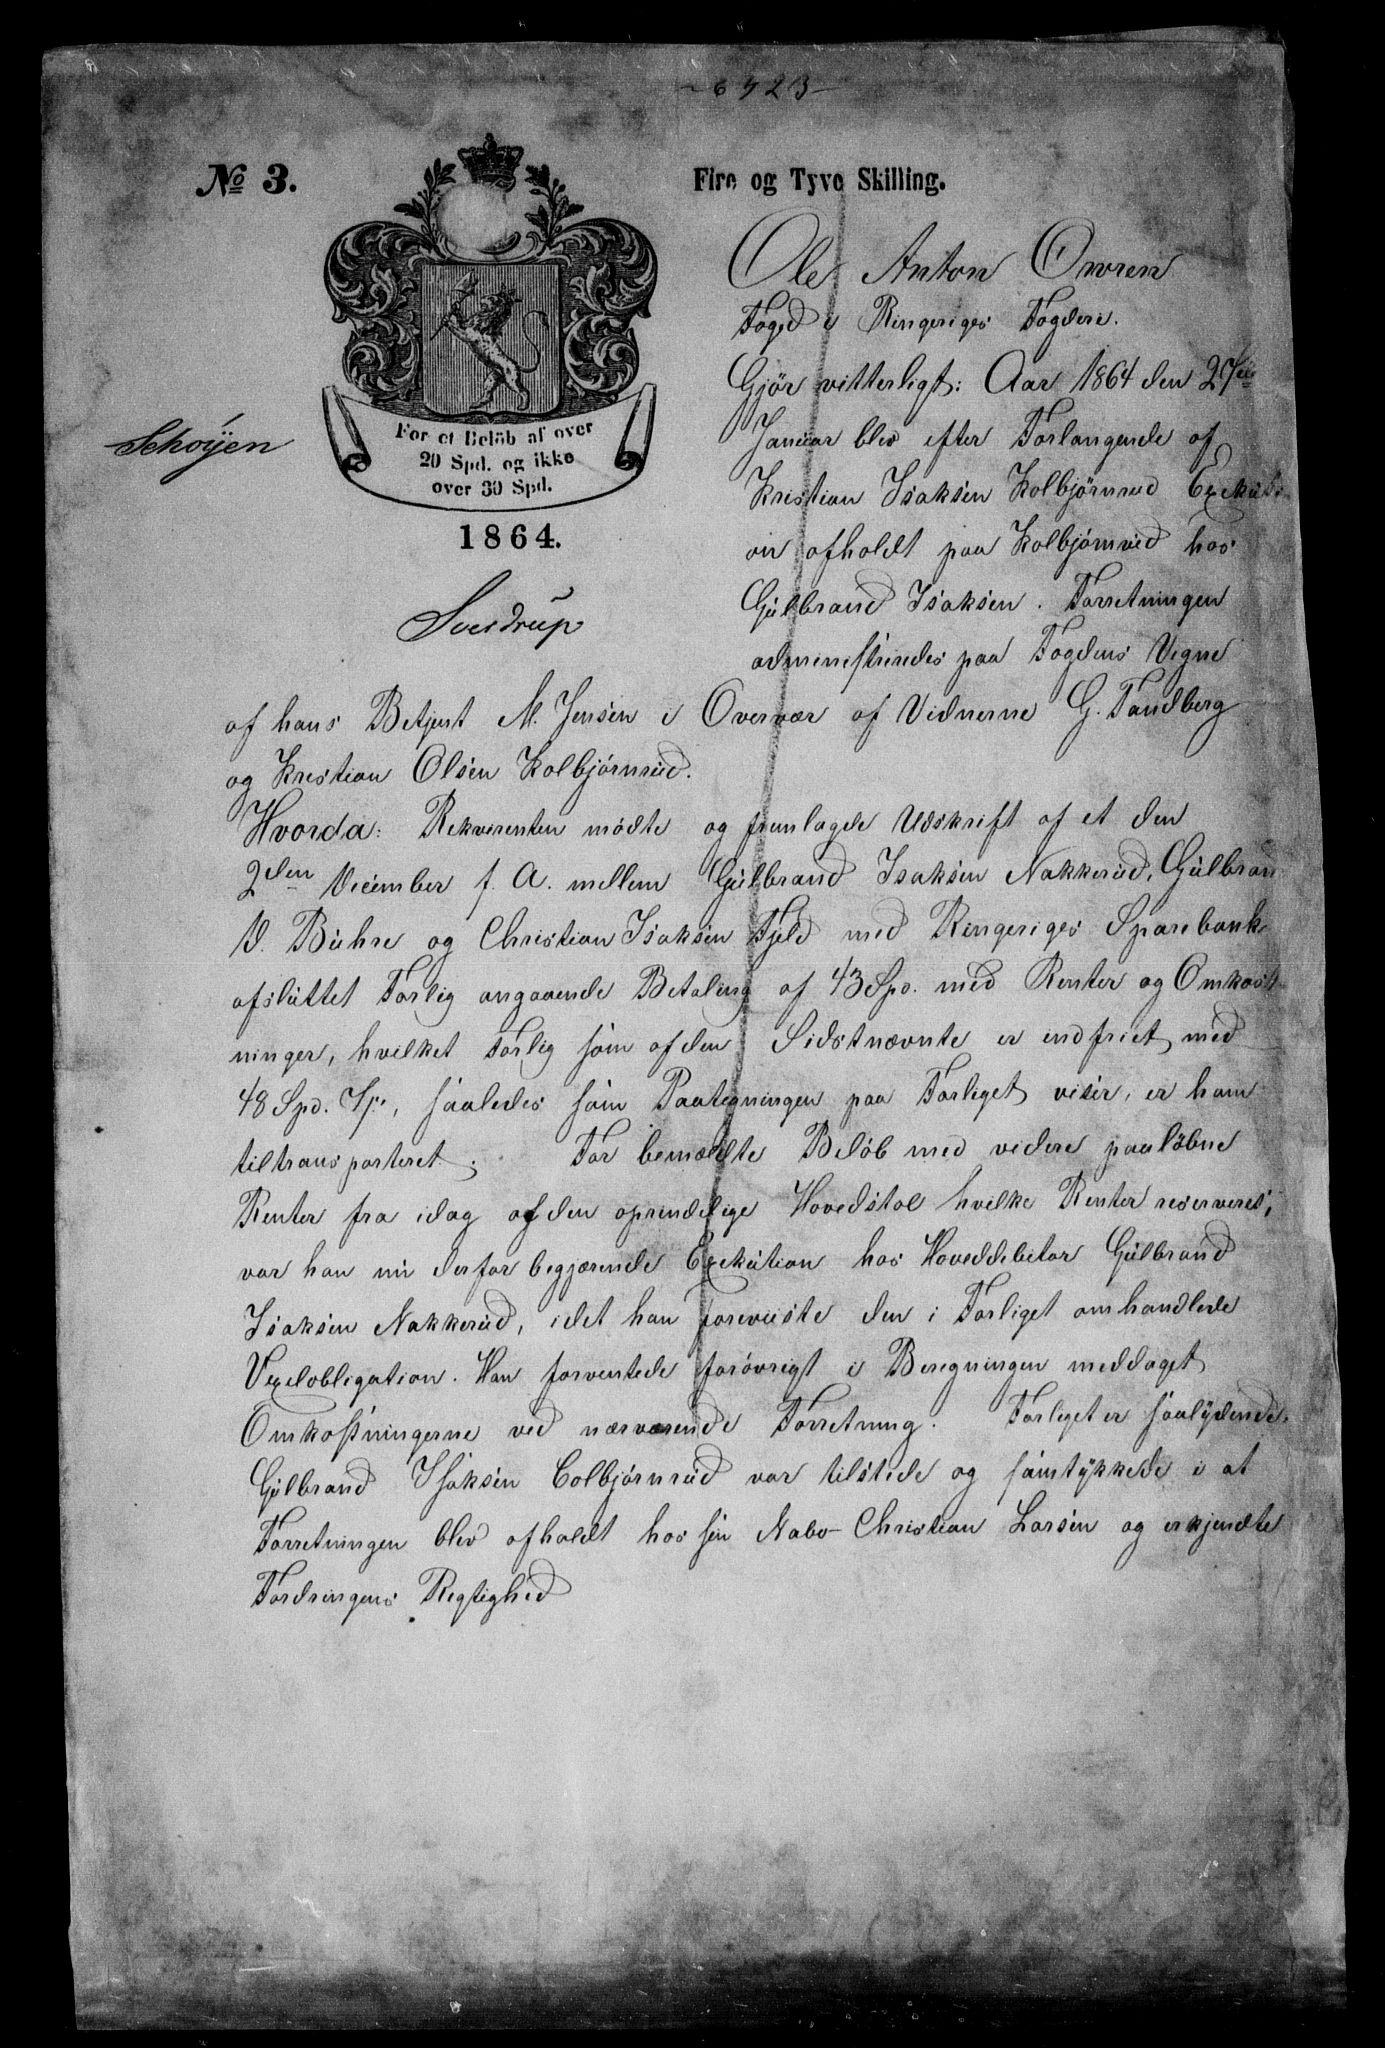 -6423-
No 3.
Fire og Tyve Skilling.
For et Belöb af over
20 Spd. og ikke
over 30 Spd.
1864.
Schöyen
Sverdrup
Ole Anton Omren
Foged i Ringeriges Fogderi.
Gjör vitterligt: Aar 1864 den 27de
Januar blev efter Forlangende af
Kristian Isaksen Kolbjörnrud Exekuti-
on afholdt paa Kolbjörnrud hos
Gulbrand Isaksen. Forretningen
administreredes paa Fogdens Vegne
af hans Betjent M. Jensen i Overvær af Vidnerne G. Tandberg
og Kristian Olsen Kolbjörnrud.
Hvorda: Rekvirenten mödte og fremlagde Udskrift af et den
2den December f. A. mellem Gulbrand Isaksen Nakkerud, Gulbrand
D. Buhre og Christian Isaksen Fjeld med Ringeriges Sparebank
afsluttet Forlig angaaende Betaling af 43 Spd. med Renter og Omkost-
ninger, hvilket Forlig som af den Sidstnævnte er indfriet med
48 Spd. 7 s., saaledes som Paategningen paa Forliget viser, er ham
tiltransporteret. For bemældte Belöb med videre paalöbne
Renter fra idag af den oprindelige Hovedstol hvilke Renter reserveres,
var han nu derfor begjærende Exekution hos Hoveddebitor Gulbrand
Isaksen Nakkerud, idet han foreviiste den i Forliget omhandlede
Vexelobligation. Han forventede forövrigt i Beregningen meddaget
Omkostningerne ved nærværende Forretning. Forliget er saalydende.
Gulbrand Isaksen Colbjörnrud var tilstede og samtykkede i at
Forretningen blev afholdt hos sin Nabo Christian Larsen og erkjendte
Fordringens Rigtighed